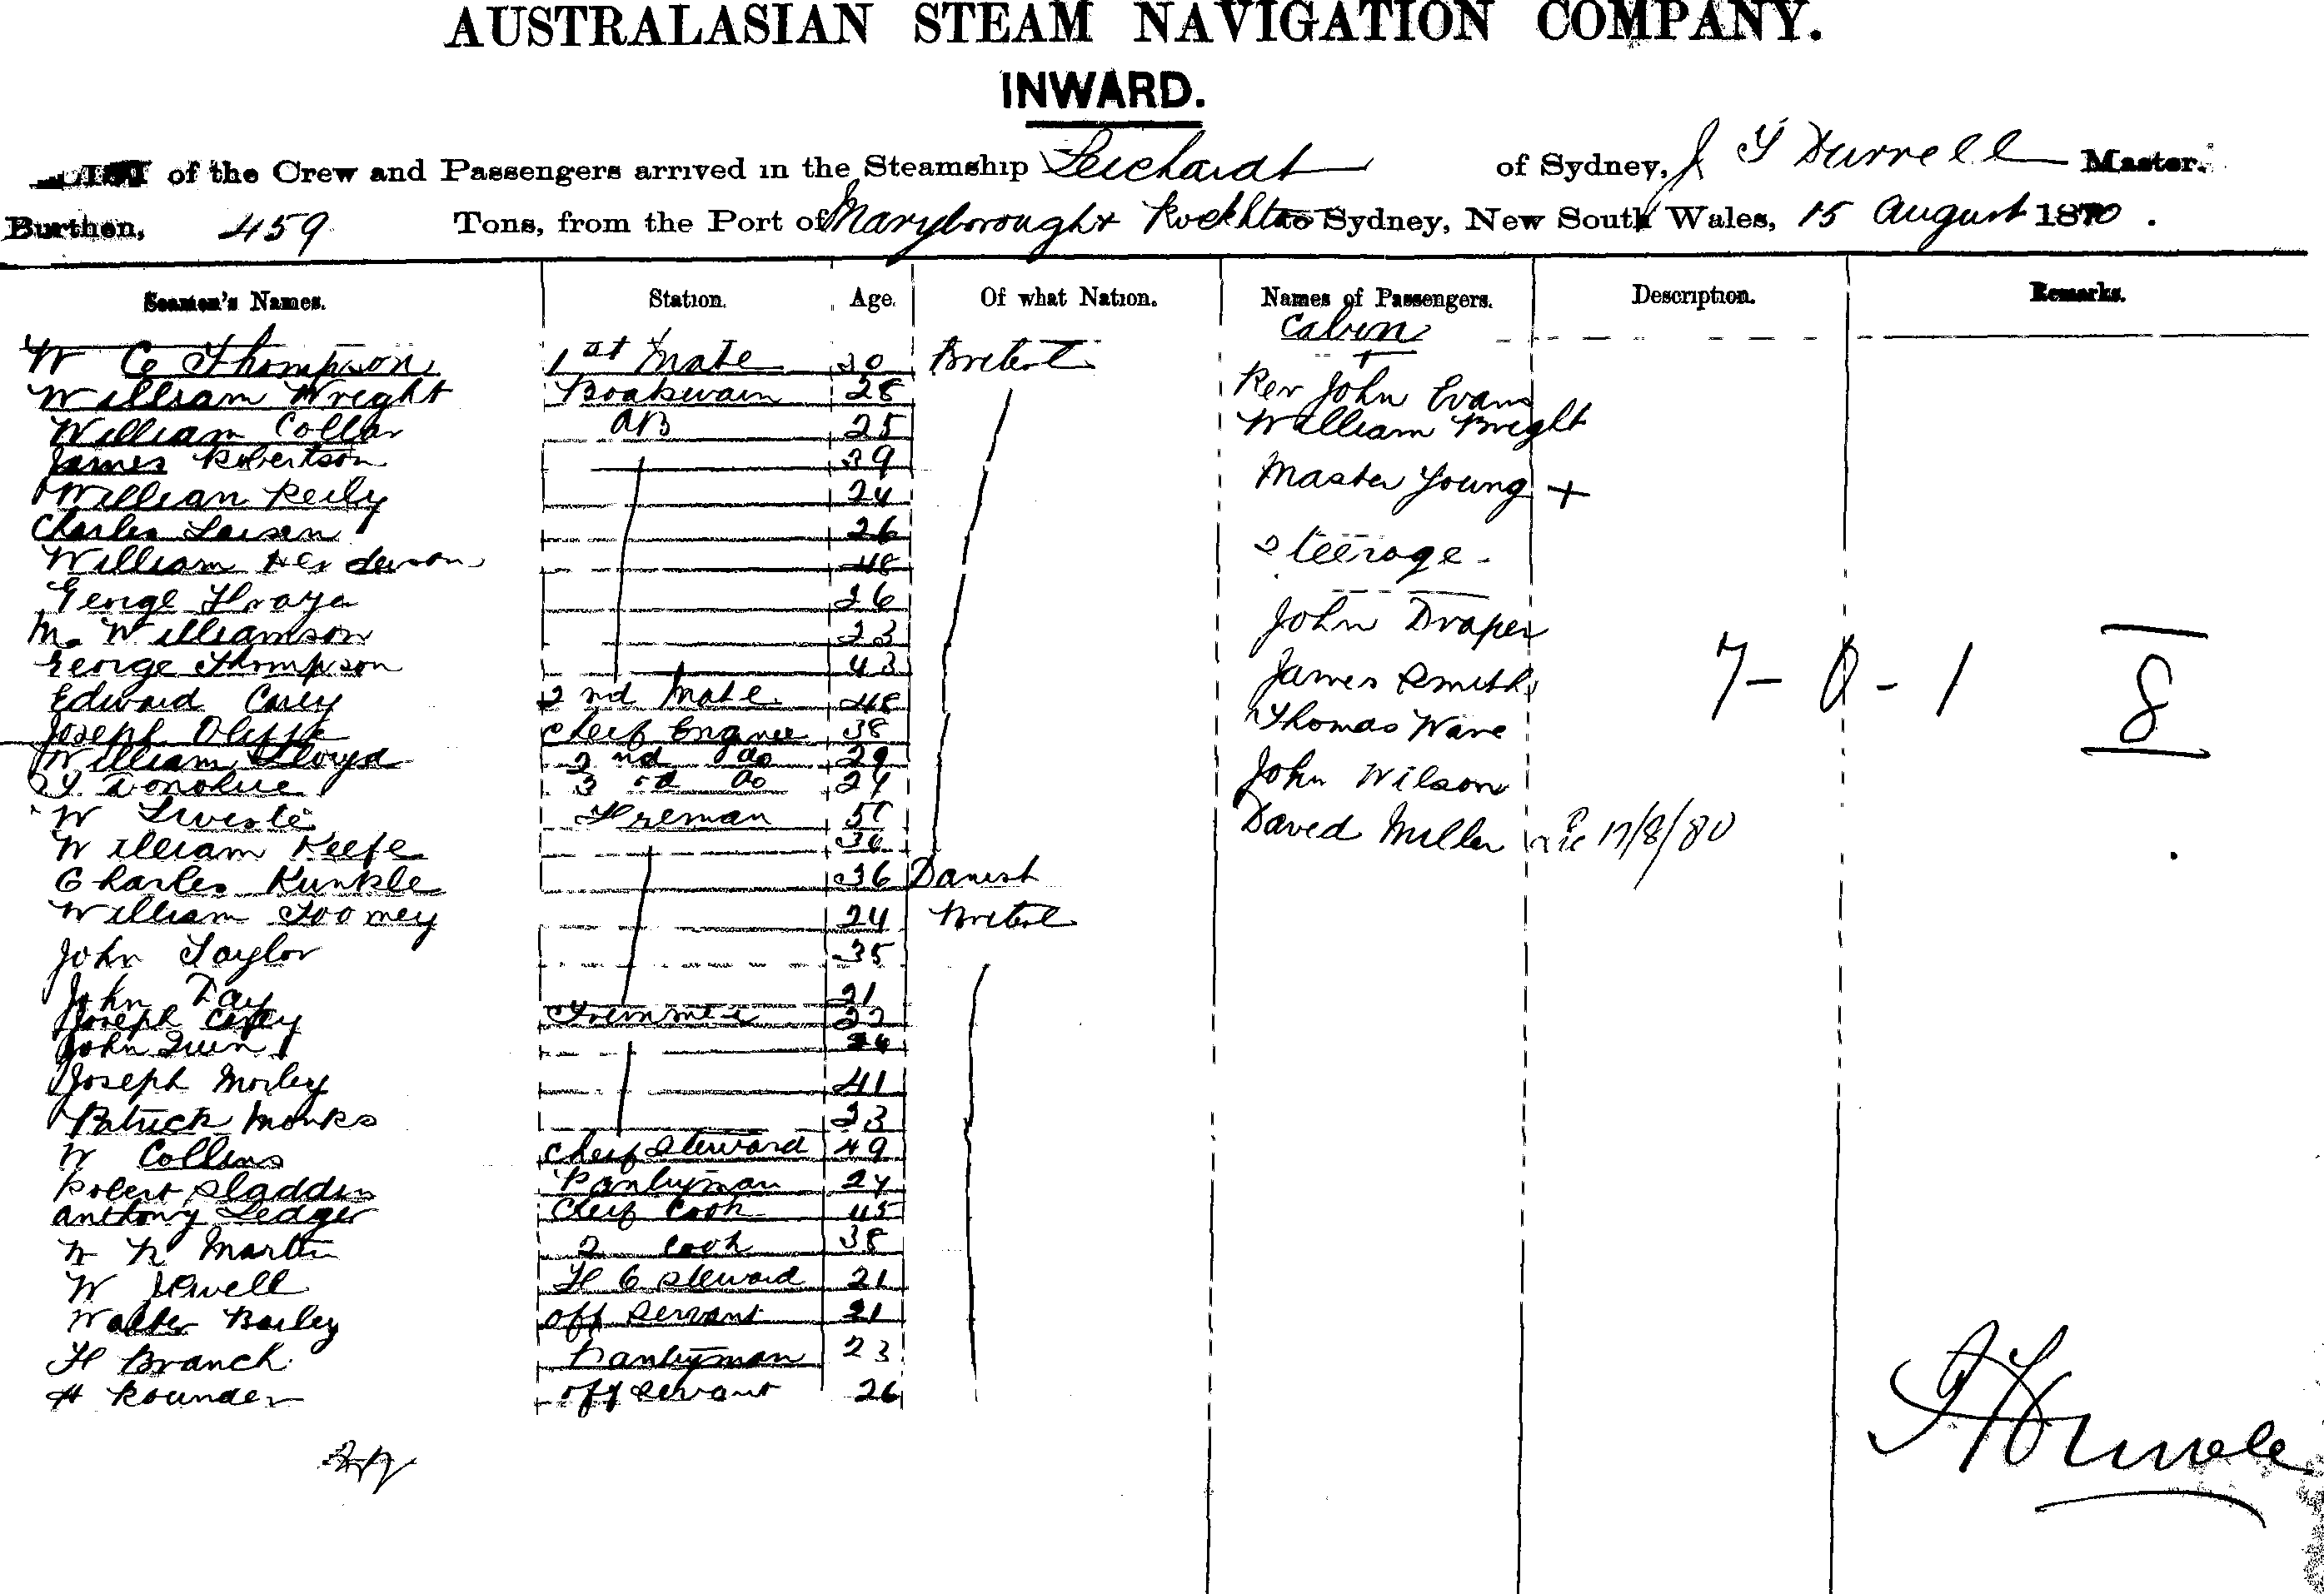 AUSTRALASIAN STEAM NAVIGATION COMPANY.
INWARD.
of the Crew and Passengers arrived in the Steamship Leichardt of Sydney, J Durrell Master.
Burthen, 459 Tons, from the Port of Maryborough & Rockhton to Sydney, New South Wales, 15 August 1880.
Seamen's Names. Station. Age. Of what Nation. Names of Passengers. Description. Remarks.
Cabin
W C Thompson 1st Mate 30 British
William Wright Boatswain 28 Rev John Evans
William Collar AB 25 William Bright
James Robertson 39
William Reily 24 Master Young +
Charles Larsen 26
William Henderson 48 Steerage
George 26
M. Williamson 23 John Draper
George Thompson 43 James Smith 7 - 0 - 1 8
Edward Carey 2nd Mate 48
Joseph Oliffe Cheif Enginee 38 Thomas Ware
William Lloyd 2nd do 29
Donohue 3rd do 24 John Wilson
W Fireman David Miller 17/8/80
William Keefe 36
Charles Kunkle 36 Danish
William Toomey 24 British
John Taylor 35
John Day 21
Joseph Carey Trimmer 22
John Quin 24
Joseph Morley 41
Patrick Monks 23
W Collins Cheif Steward 49
Robert Sladden Pantryman 24
Anthony Ledger Cheif Cook 45
Martin 2 Cook 38
W Jewell F C Steward 21
Walter Barley Off Servant 21
H Branch Pantryman 23
H Rounder Off Servant 26